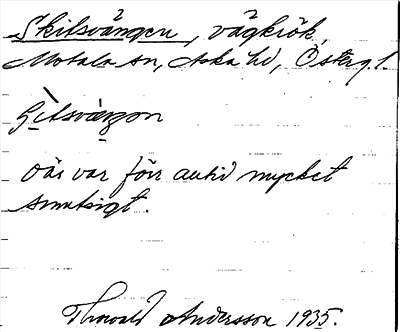 Skilsvängen, vägkrök,
Motala sn, Aska hd, Östergl.
där var förr alltid mycket
smutsigt.
Thorvald Andersson 1935.